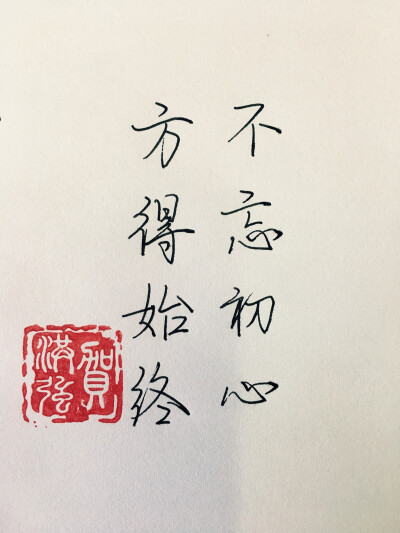 不忘初心
方得始终
贺洪弦